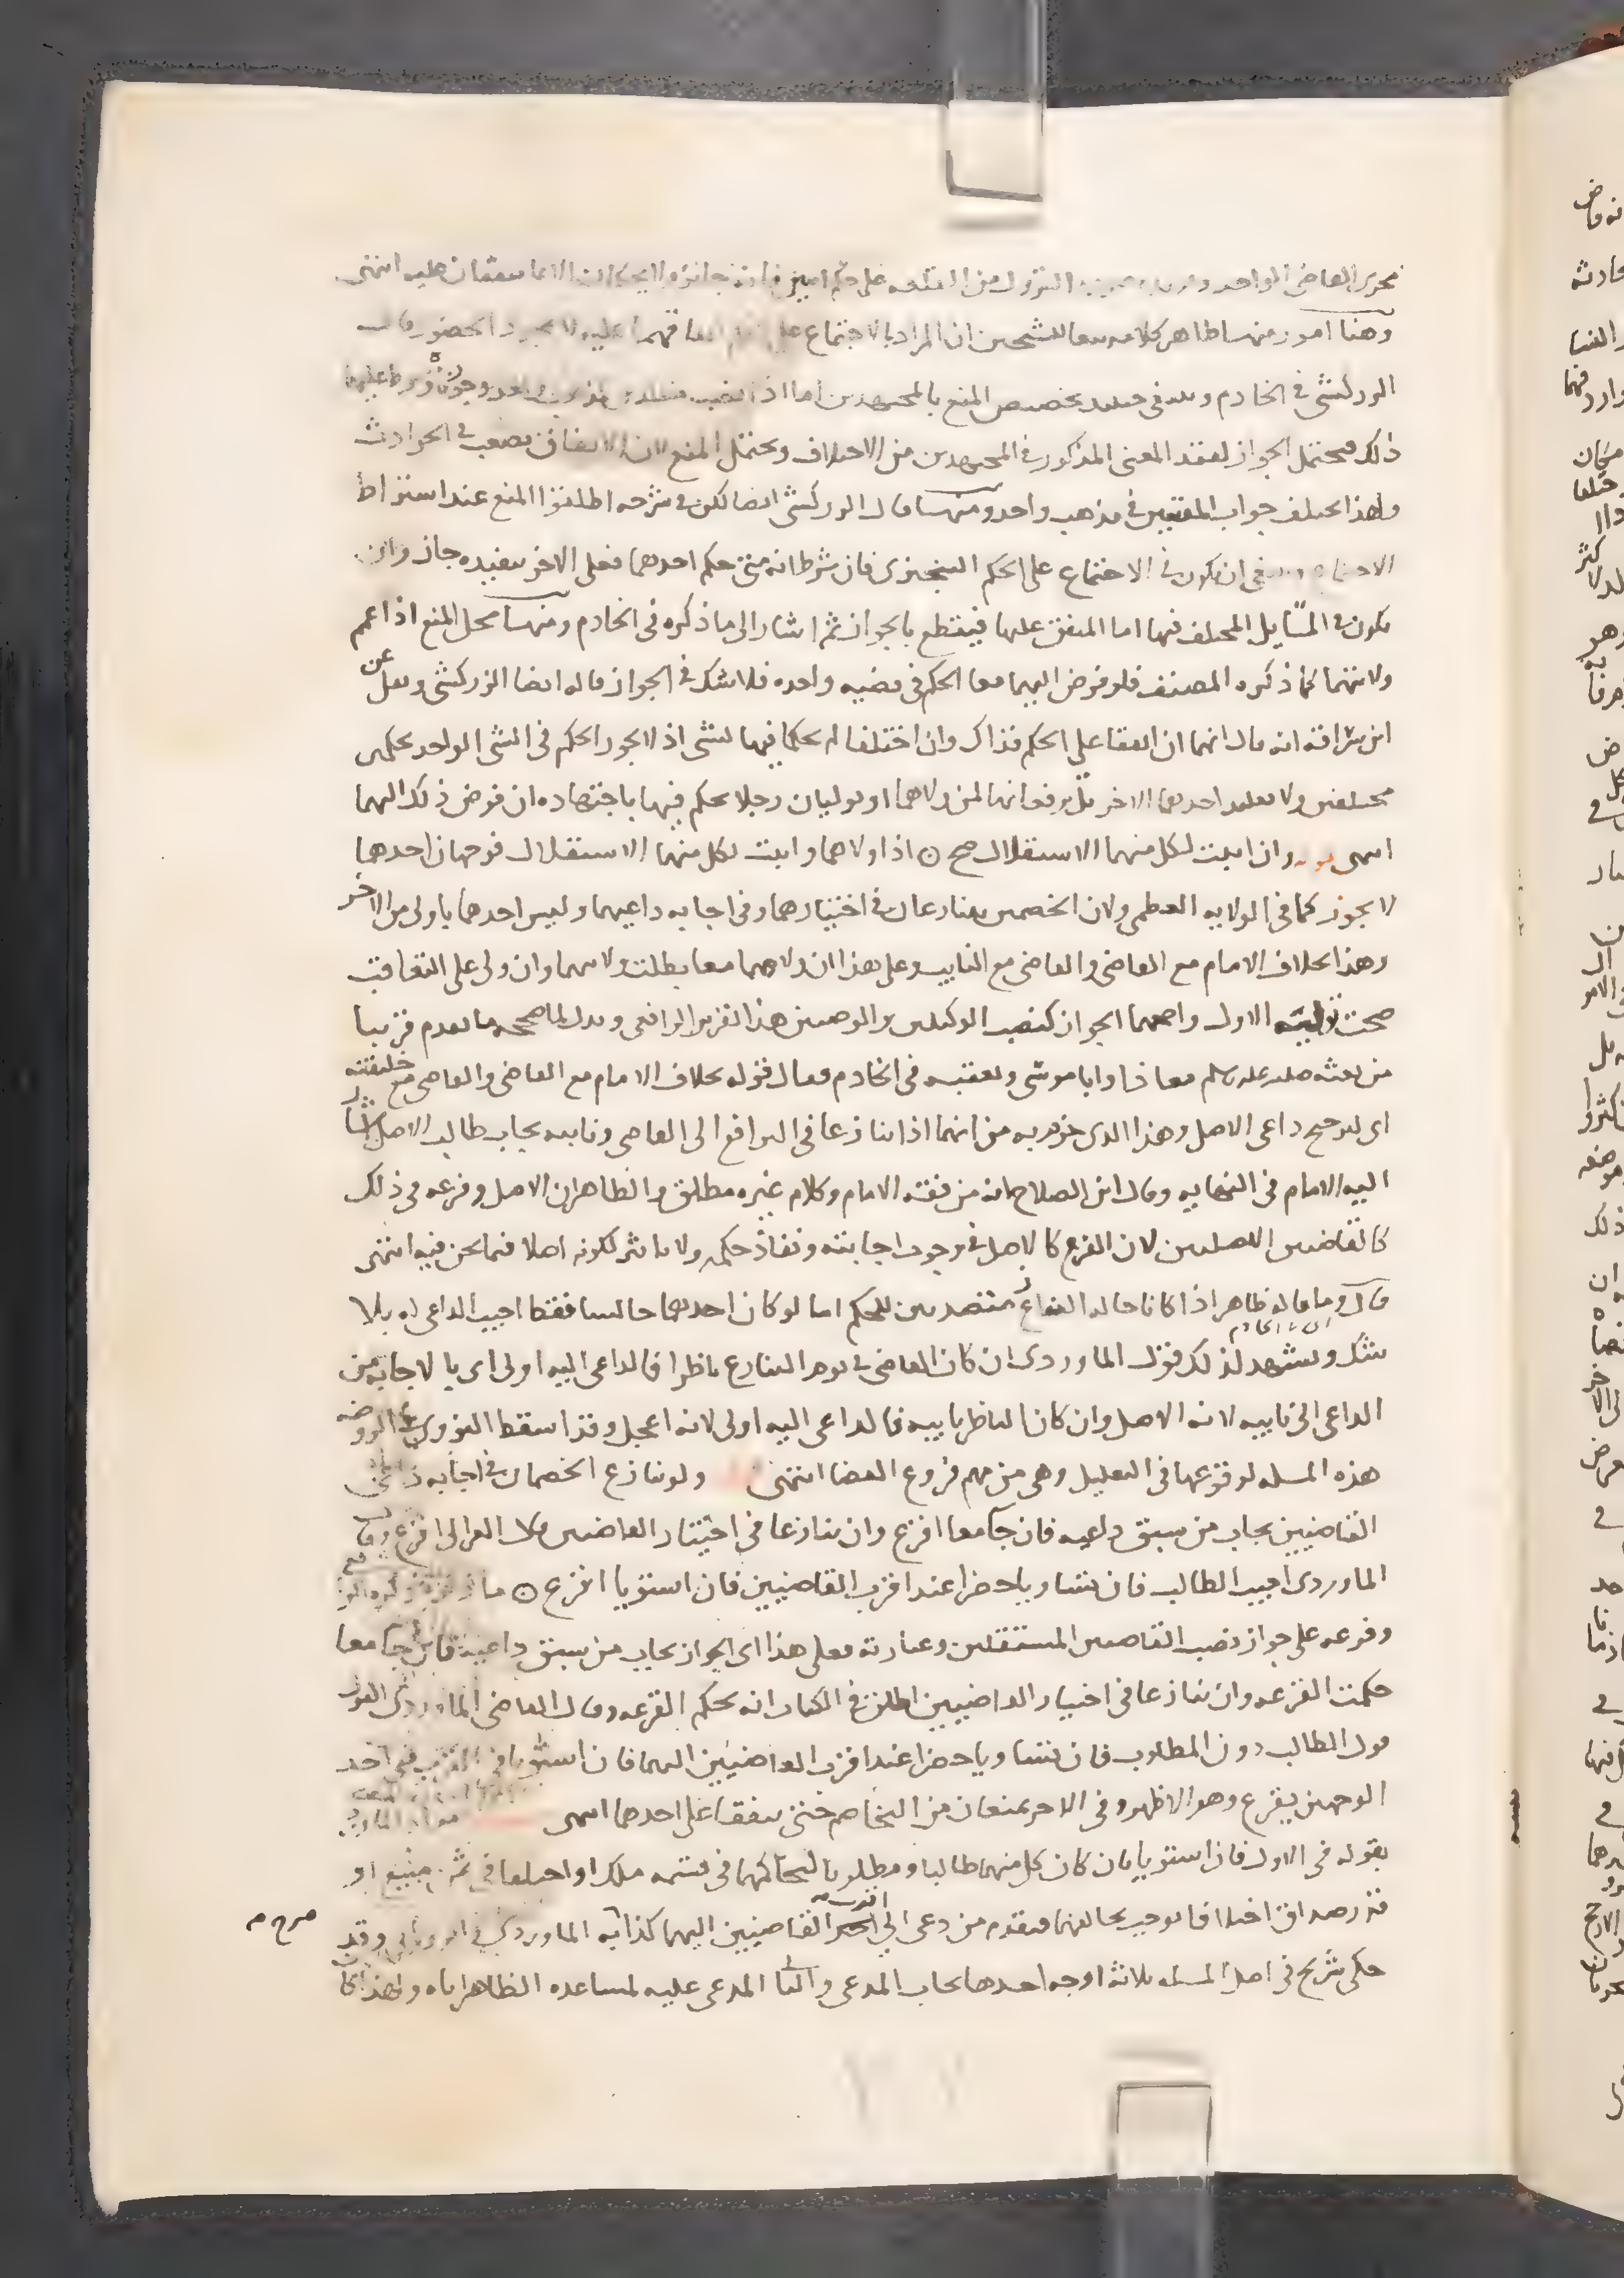 وهنا امور منها ظاهر كلامه تبعا للشيخين ان المراد بالاجتماع لا مجرد الحضور قال
الزركشي في الخادم وينبغي تخصيص المنع بالمجتهدين اما اذا
ذلك فيحتمل الجواز لفقد المعنى المذكور في المجتهدين من الاختلاف ويحتمل المنع لان الاتفاق يصعب في الحوادث
ولهذا يختلف جواب المفتيين في مذهب واحد ومنها قال الزركشي ايضا لكن في شرحه اطلقوا المنع عند اشتراط
ان يكون في الاجتماع على الحكم التنجيزي فان شرط انه متى حكم احدهما فعلى الاخر تنفيذه جاز وان
يكون في المسايل المختلف فيها اما المتفق عليها فيقطع بالجواز ثم اشار الى ما ذكره في الخادم ومنها محل المنع اذا عمم
ولايتهما كما ذكره المصنف فلو فوض اليهما معا الحكم في قضيه واحده فلا شك في الجواز قاله ايضا الزركشي ونقل عن
ابن سراقه انه قال انهما ان اتفقا على الحكم فذاك وان اختلفا لم يحكما فيها لشي اذ لا يجوز الحكم في الشي الواحد بحكمين
مختلفين ولا يقلد احدهما الاخر بل يرفعانها لمن ولاهما او يوليان رجلا يحكم فيها باجتهاده ان فوض ذلك اليهما
انتهى وان اثبت لكل منهما الاستقلال صح ۝ اذا ولاهما واثبت لكل منهما الاستقلال فوجهان احدهما
لا يجوز كما في الولايه العظمى ولان الخصمين يتنازعان في اختيارهما وفي اجابه داعيهما وليس احدهما باولى من الاخر
وهذا بخلاف الامام مع القاضي والقاضي مع النايب وعلى هذا ان ولاهما معا بطلت ولايتهما وان ولى على التعاقب
صحت تولية الاول واصحهما الجواز كنصب الوكيلين والوصيين هذا تقرير الرافعي ويدل لما صححه ما تقدم قريبا
من بعثه صلى الله عليه وسلم معاذا وابا موسى وتعقبه في الخادم فقال قوله بخلاف الامام مع القاضي والقاضي مع خليفته
اي لترجيح داعي الاصل وهذا الذي جزم به من انهما اذا تنازعا في الترافع الى القاضي ونايبه يجاب طالب الاصل
اليه الامام في النهايه وقال ابن الصلاح انه من فقه الامام وكلام غيره مطلق والظاهر ان الاصل وفرعه في ذلك
كالقاضيين الاصليين لان الفرع كالاصل في وجوب اجابته ونفاذ حكمه ولا تاثير لكونه اصلا فيما نحن فيه انتهى
قال وما قاله ظاهر اذا كانا حاله النزاع متصديين للحكم اما لو كان احدهما جالسا فقط اجيب الداعي له بلا
شك ويشهد لذلك قول الماوردي ان كان القاضي في يوم التنازع ناظرا فالداعي اليه اولى اي بالاجابه من
الداعي الى نايبه لانه الاصل وان كان الناظر نايبه فالداعي اليه اولى لانه اعجل وقد اسقط النووي في الروضه
هذه المسله لوقوعها في التعليل وهي من مهم فروع القضا انتهى ولو تنازع الخصمان في اجابه
القاضيين يجاب من سبق داعيه فان جآ معا اقرع وان تنازعا في اختيار القاضيين
الماوردي اجيب الطالب فان تساويا حضرا عند اقرب القاضيين فان استويا اقرع ۝
وفرعه على جواز نصب القاضيين المستقلين وعبارته فعلى هذا اي الجواز يجاب من سبق داعيه فان جآ معا
حكمت القرعه وان تنازعا في اختيار القاضيين اطلق في الكتاب انه يحكم القرعه وقال القاضي الماوردي القول
قول الطالب دون المطلوب فان تساويا حضرا عند اقرب القاضيين اليهما فان استويا في القرب ففي احد
الوجهين يقرع وهو الاظهر وفي الاخر يمنعان من التخاصم حتى يتفقا على احدهما انتهى
بقوله في الاول فان استويا بان كان كل منهما طالبا ومطلوبا لتحاكمهما في قسمه ملك او اختلفا في ثمن مبيع او
قدر صداق اختلافا يوجب تحالفهما فيقدم من دعى الى اقرب القاضيين اليهما كذا قيده الماوردي وقد
حكى شريح في اصل المسله ثلاثه اوجه احدها يجاب المدعي والثاني المدعى عليه لمساعده الظاهر اياه ولهذا كان